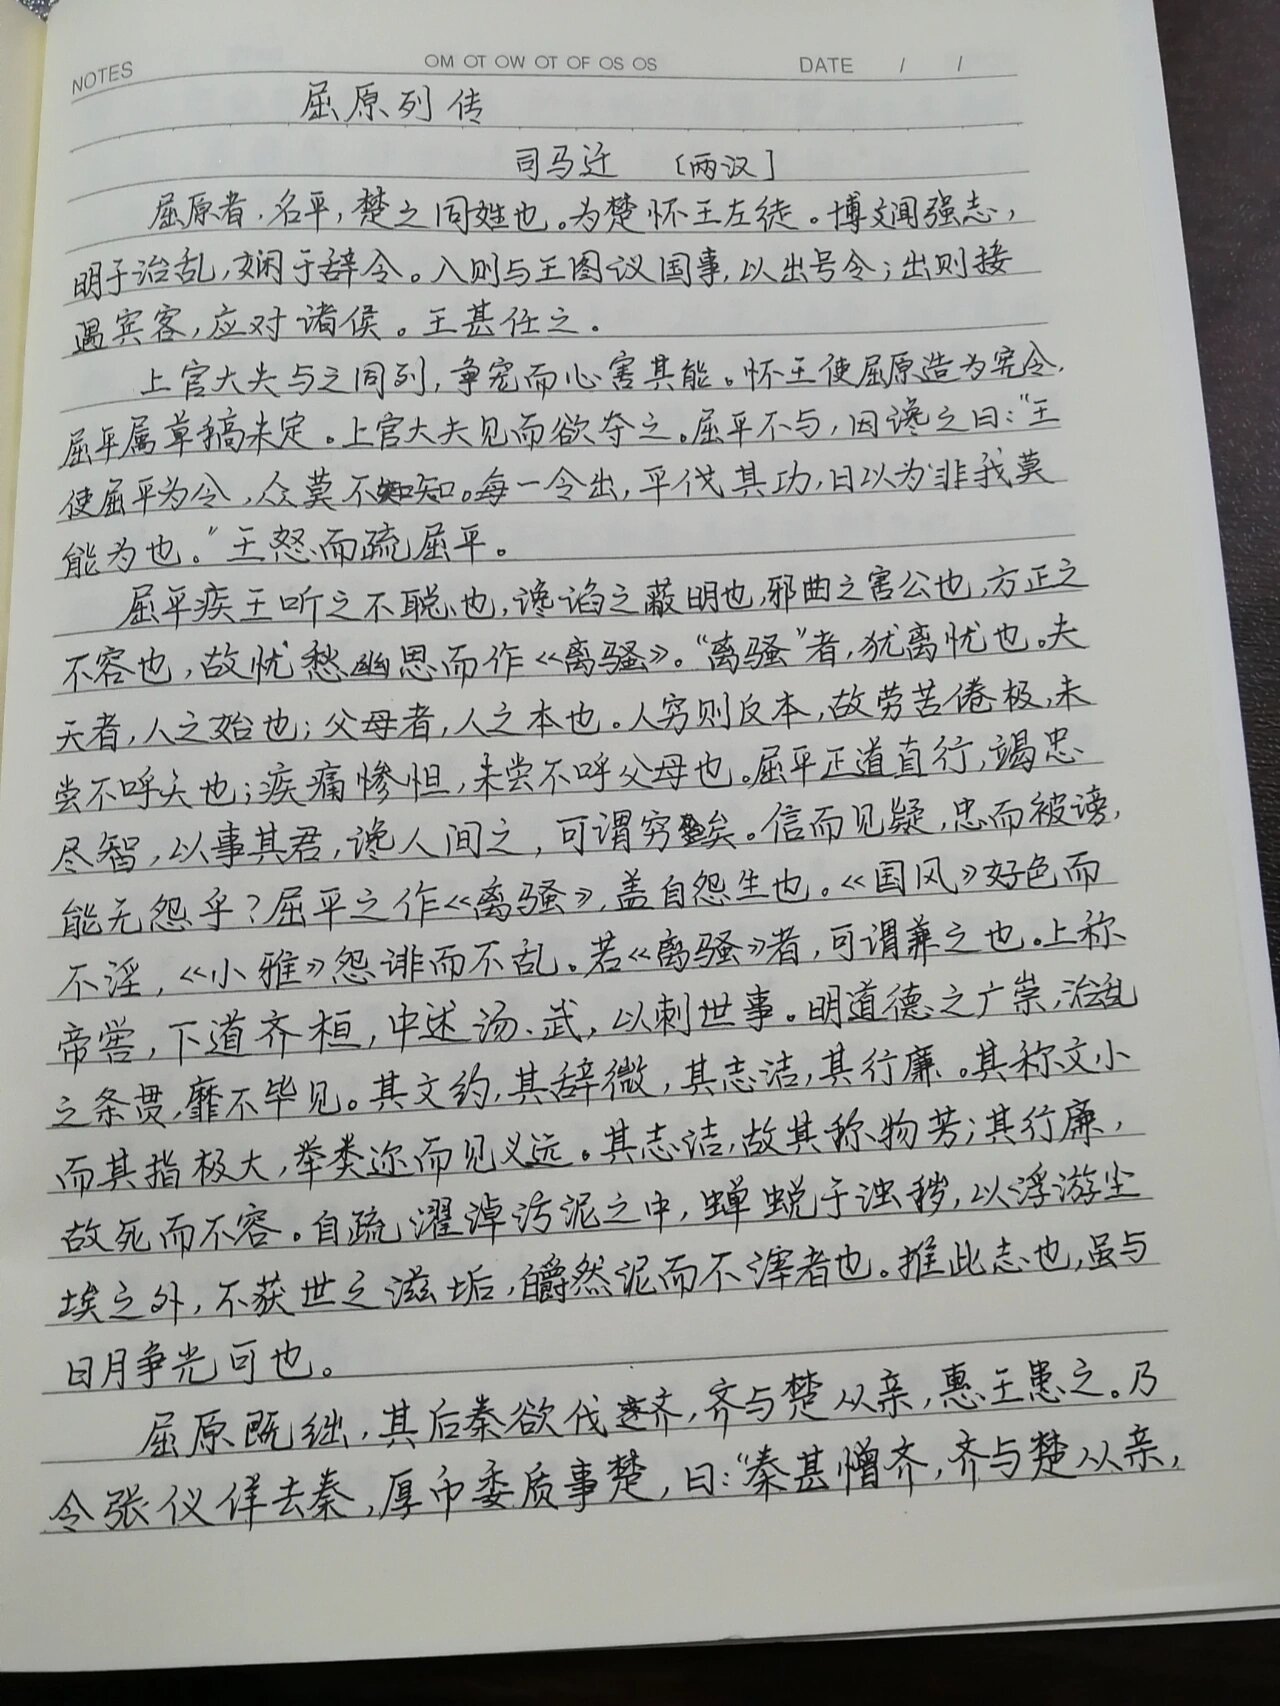 NOTES OM OT OW OT OF OS OS DATE / /
屈原列传
司马迁 [两汉]
屈原者,名平,楚之同姓也。为楚怀王左徒。博文闻强志,
明于治乱,娴于辞令。入则与王图议国事,以出号令;出则接
遇宾客,应对诸侯。王甚任之。
上官大夫与之同列,争宠而心害其能。怀王使屈原造为宪令,
屈平属草稿未定。上官大夫见而欲夺之。屈平不与,因谗之曰:“王
使屈平为令,众莫不知。每一令出,平伐其功,曰以为‘非我莫
能为也。”王怒而疏屈平。
屈平疾王听之不聪也,谗谄之蔽明也,邪曲之害公也,方正之
不容也,故忧愁幽思而作《离骚》。“离骚”者,犹离忧也。夫
天者,人之始也;父母者,人之本也。人穷则反本,故劳苦倦极,未
尝不呼天也;疾痛惨怛,未尝不呼父母也。屈平正道直行,竭忠
尽智,以事其君,谗人间之,可谓穷矣。信而见疑,忠而被谤,
能无怨乎?屈平之作《离骚》,盖自怨生也。《国风》好色而
不淫,《小雅》怨诽而不乱。若《离骚》者,可谓兼之也。上称
帝喾,下道齐桓,中述汤、武,以刺世事。明道德之广崇,治乱
之条贯,靡不毕见。其文约,其辞微,其志洁,其行廉。其称文小
而其指极大,举类迩而见义远。其志洁,故其称物芳;其行廉,
故死而不容。自疏濯淖污泥之中,蝉蜕于浊秽,以浮游尘
埃之外,不获世之滋垢,皭然泥而不滓者也。推此志也,虽与
日月争光可也。
屈原既绌,其后秦欲伐齐,齐与楚从亲,惠王患之。乃
令张仪佯去秦,厚币委质事楚,曰:“秦甚憎齐,齐与楚从亲,